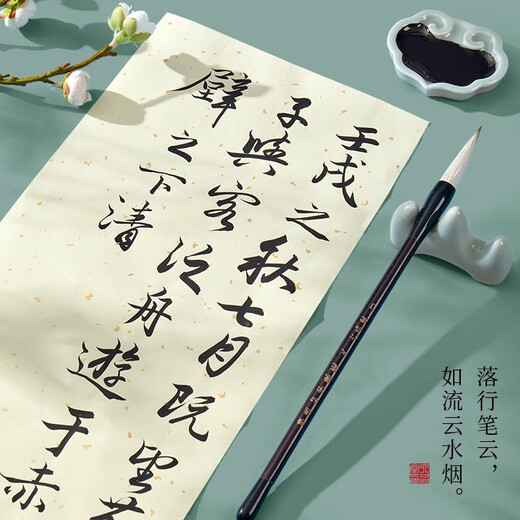 壬戌之秋七月既望
子與客泛舟遊于赤
壁之下清
落行笔云，
如流云水烟。